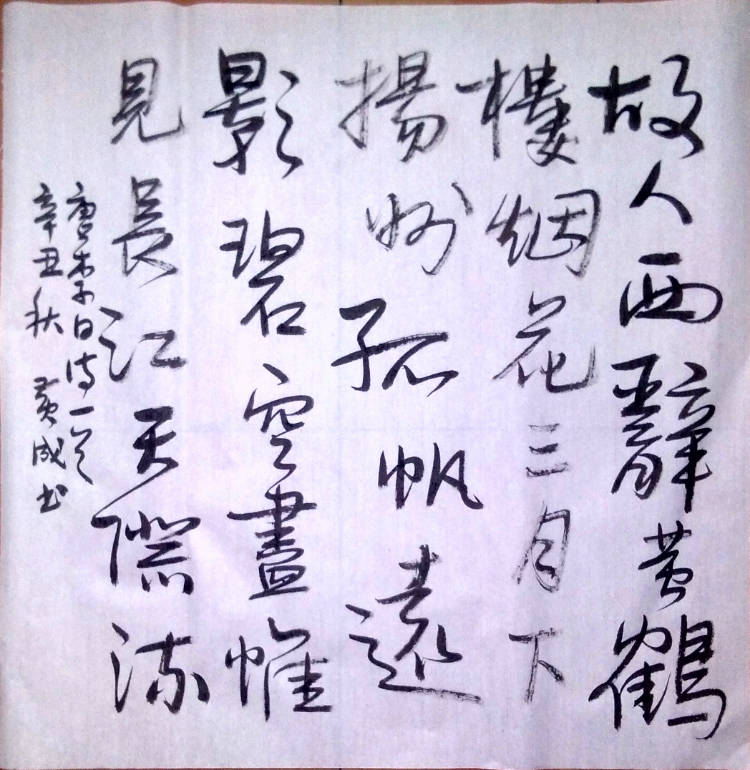 故人西辭黃鶴
樓烟花三月下
揚州孤帆遠
影碧空盡惟
見長江天際流
唐李白詩一首
辛丑秋 黃成书